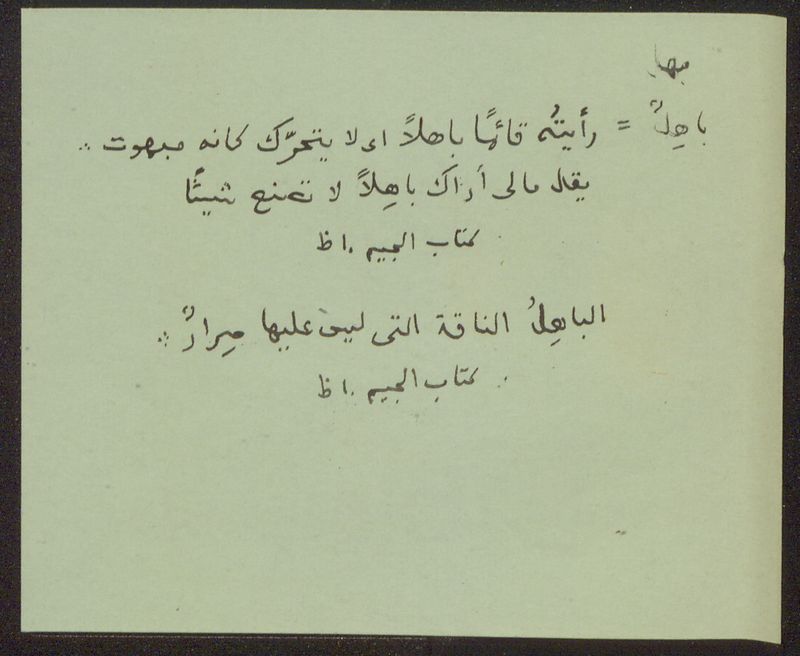 بهل
باهِلٌ = رأيتُه قائمًا باهلاً اى لا يتحرّك كانه مبهوت ∴
يقال مالى أراك باهِلاً لا تصنع شيئًا
كتاب الجيم ١٠ ظ
الباهِلُ الناقة التى ليس عليها صِرارٌ ∴
كتاب الجيم ١٠ ظ